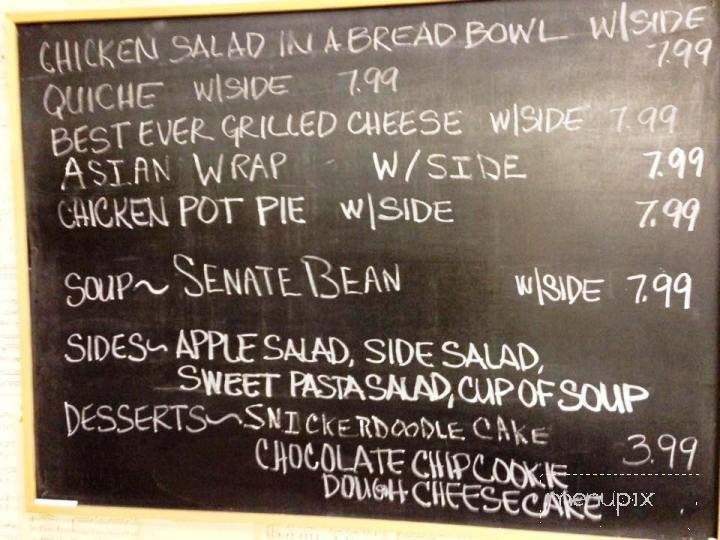 CHICKEN SALAD IN A BREAD BOWL W/SIDE
7.99
QUICHE W/SIDE 7.99
BEST EVER GRILLED CHEESE W/SIDE 7.99
ASIAN WRAP W/SIDE 7.99
CHICKEN POT PIE W/SIDE 7.99
SOUP~ SENATE BEAN W/SIDE 7.99
SIDES~ APPLE SALAD, SIDE SALAD,
SWEET PASTA SALAD, CUP OF SOUP
DESSERTS~ SNICKERDOODLE CAKE
3.99
CHOCOLATE CHIP COOKIE
DOUGH CHEESECAKE
menupix